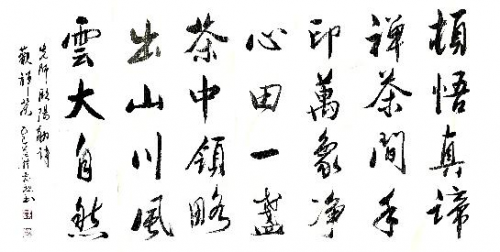 頓悟真諦
禪茶間手
印萬象净
心田一盞
茶中領略
出山川風
雲大自然
先師歐陽勛詩